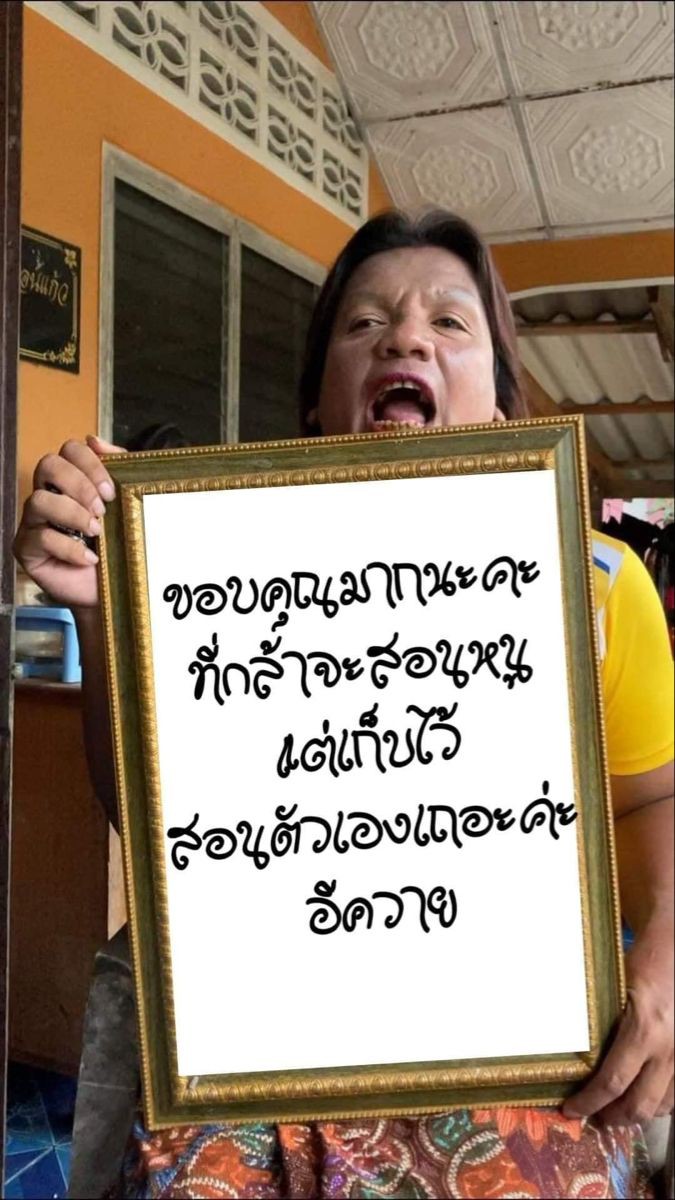 ขอบคุณมากนะคะ
ที่กล้าจะสอนหนู
แต่เก็บไว้
สอนตัวเองเถอะค่ะ
อีควาย